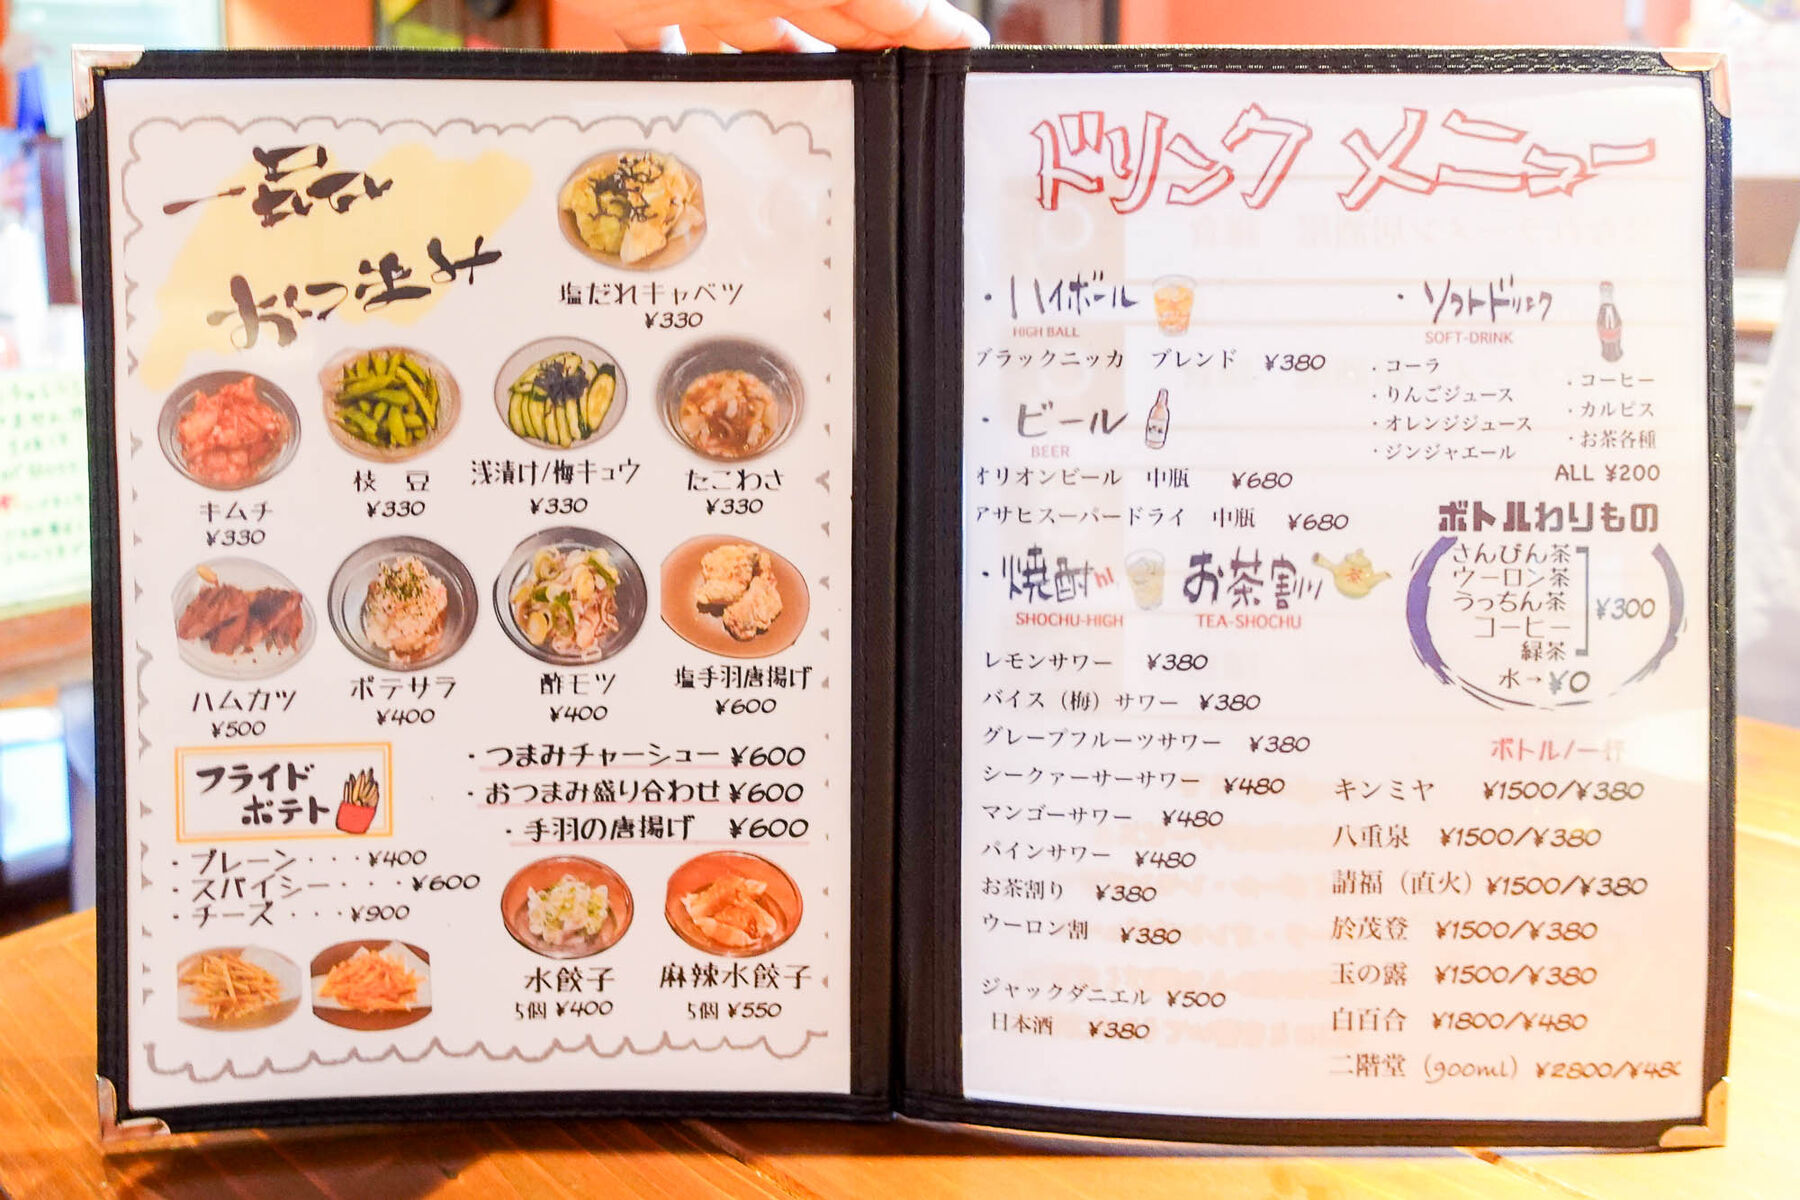 一品
おつまみ
塩だれキャベツ
¥330
キムチ
¥330
枝豆
¥330
浅漬け/梅キュウ
¥330
たこわさ
¥330
ハムカツ
¥500
ポテサラ
¥400
酢モツ
¥400
塩手羽唐揚げ
¥600
・つまみチャーシュー ¥600
・おつまみ盛り合わせ ¥600
・手羽の唐揚げ ¥600
フライド
ポテト
・プレーン・・・¥400
・スパイシー・・・¥600
・チーズ・・・¥900
水餃子
5個 ¥400
麻辣水餃子
5個 ¥550
ドリンク メニュー
・ハイボール
HIGH BALL
ブラックニッカ ブレンド ¥380
・ビール
BEER
オリオンビール 中瓶 ¥680
アサヒスーパードライ 中瓶 ¥680
・焼酎hi
SHOCHU-HIGH
お茶割り
TEA-SHOCHU
レモンサワー ¥380
バイス（梅）サワー ¥380
グレープフルーツサワー ¥380
シークァーサーサワー ¥480
マンゴーサワー ¥480
パインサワー ¥480
お茶割り ¥380
ウーロン割 ¥380
ジャックダニエル ¥500
日本酒 ¥380
・ソフトドリンク
SOFT-DRINK
・コーラ
・りんごジュース
・オレンジジュース
・ジンジャエール
・コーヒー
・カルピス
・お茶各種
ALL ¥200
ボトルわりもの
さんぴん茶
ウーロン茶
うっちん茶
コーヒー
緑茶
¥300
水→¥0
ボトル/一杯
キンミヤ ¥1500/¥380
八重泉 ¥1500/¥380
請福（直火）¥1500/¥380
於茂登 ¥1500/¥380
玉の露 ¥1500/¥380
白百合 ¥1800/¥480
二階堂（900ml）¥2800/¥48